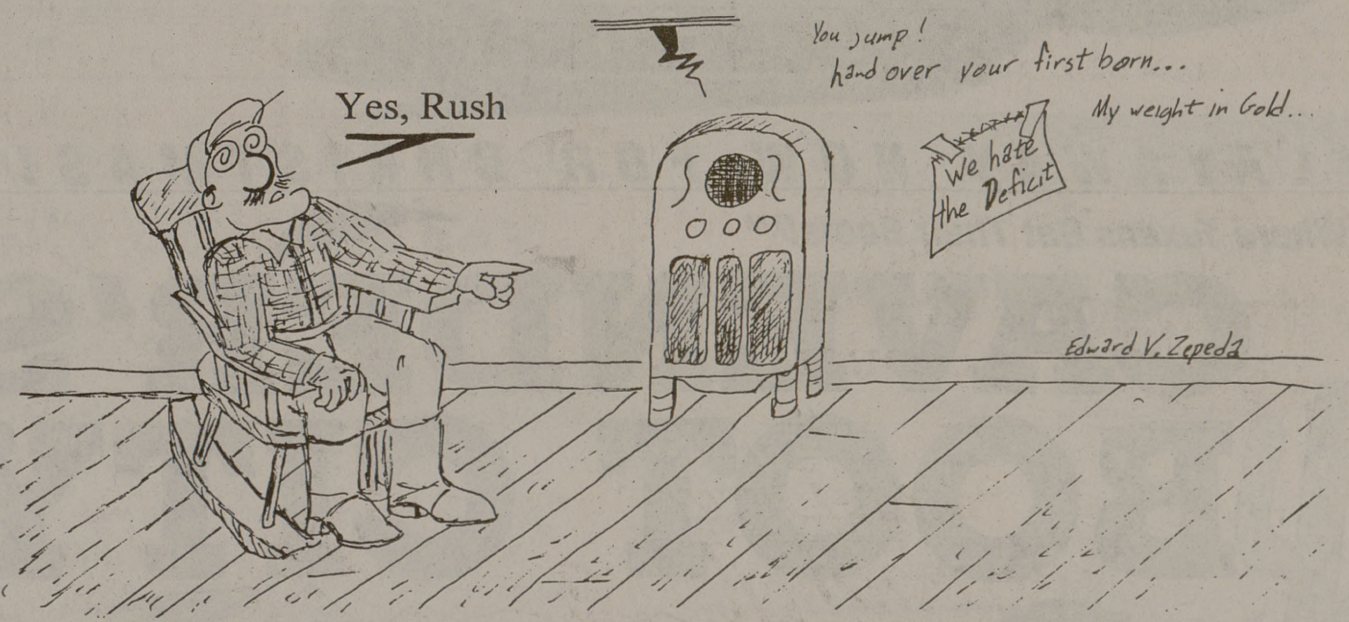 You jump!
hand over your first born...
My weight in Gold...
Yes, Rush
We hate
the Deficit
Edward V. Zepeda